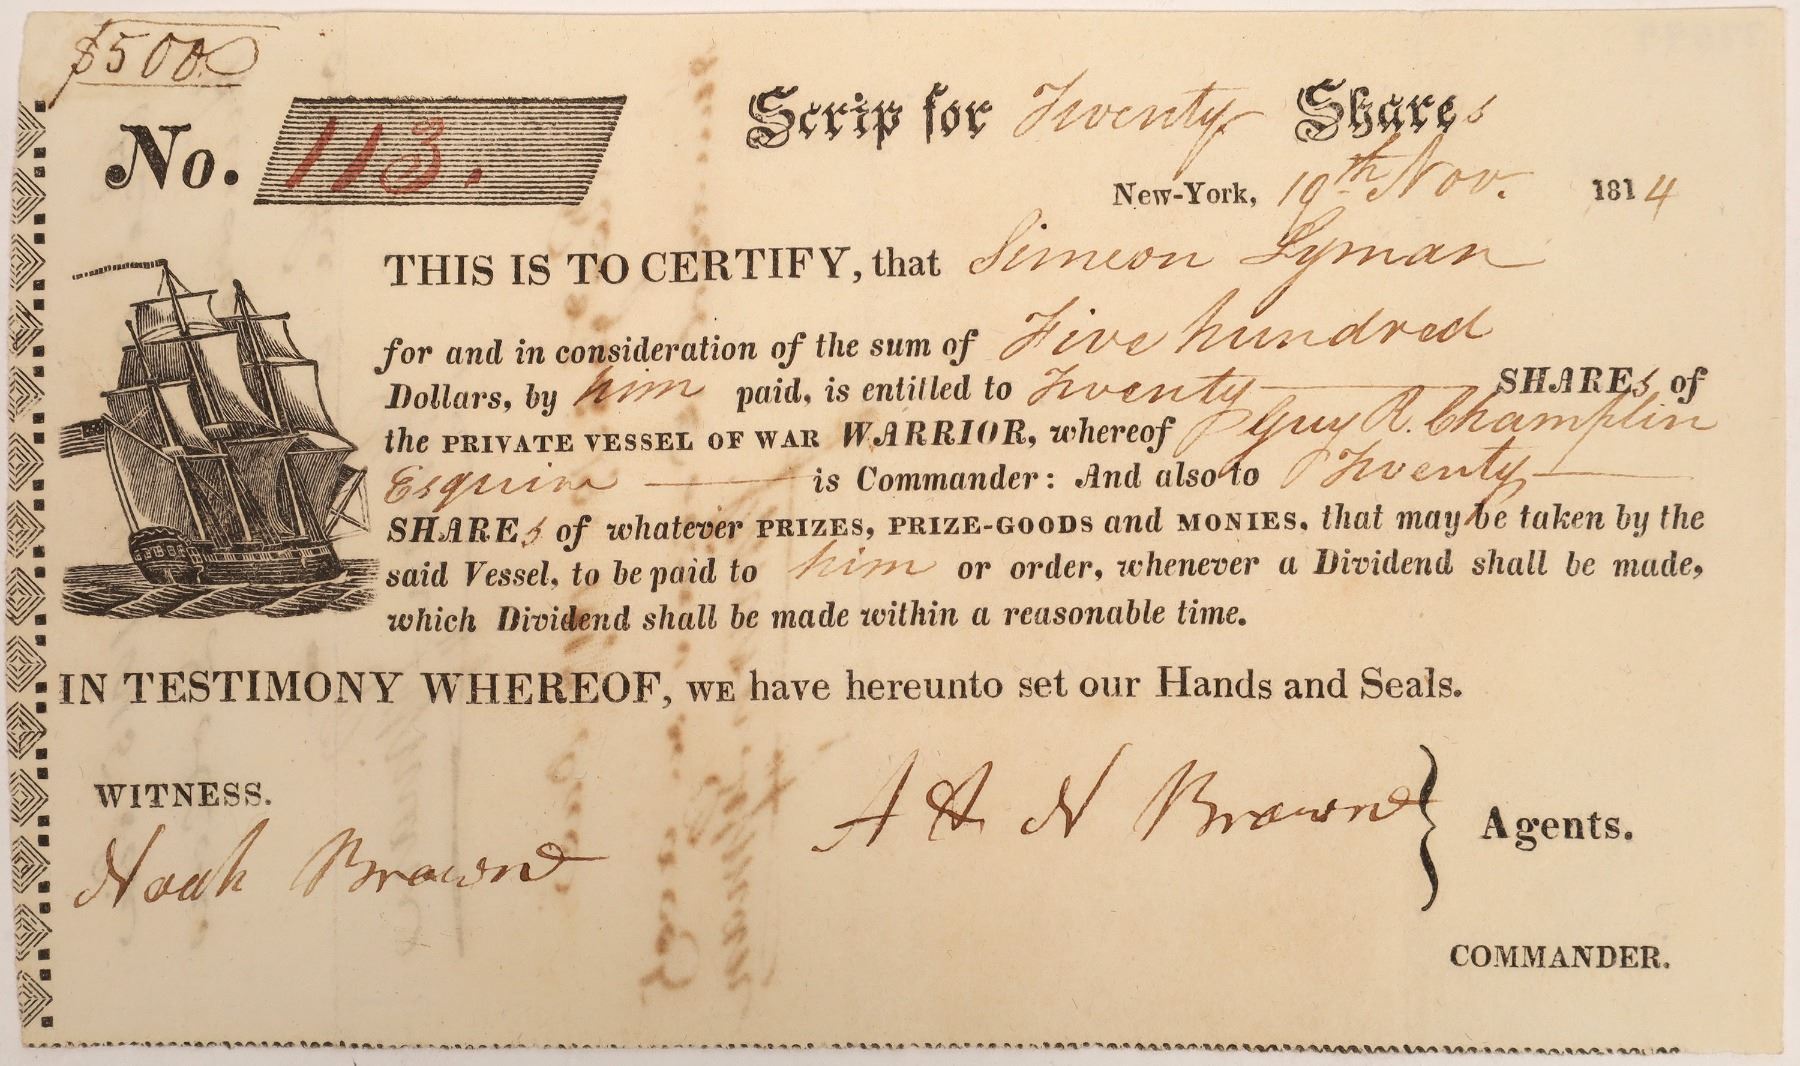 $500
No. 113.
Scrip for Twenty Shares
New-York, 19th Nov. 1814
THIS IS TO CERTIFY, that Simeon Lyman
for and in consideration of the sum of Five hundred
Dollars, by him paid, is entitled to Twenty SHAREs of
the PRIVATE VESSEL OF WAR WARRIOR, whereof Guy R. Champlin
Esquire is Commander: And also to Twenty
SHAREs of whatever PRIZES, PRIZE-GOODS and MONIES, that may be taken by the
said Vessel, to be paid to him or order, whenever a Dividend shall be made,
which Dividend shall be made within a reasonable time.
IN TESTIMONY WHEREOF, WE have hereunto set our Hands and Seals.
WITNESS.
Noah Brown
A & N Brown } Agents.
COMMANDER.